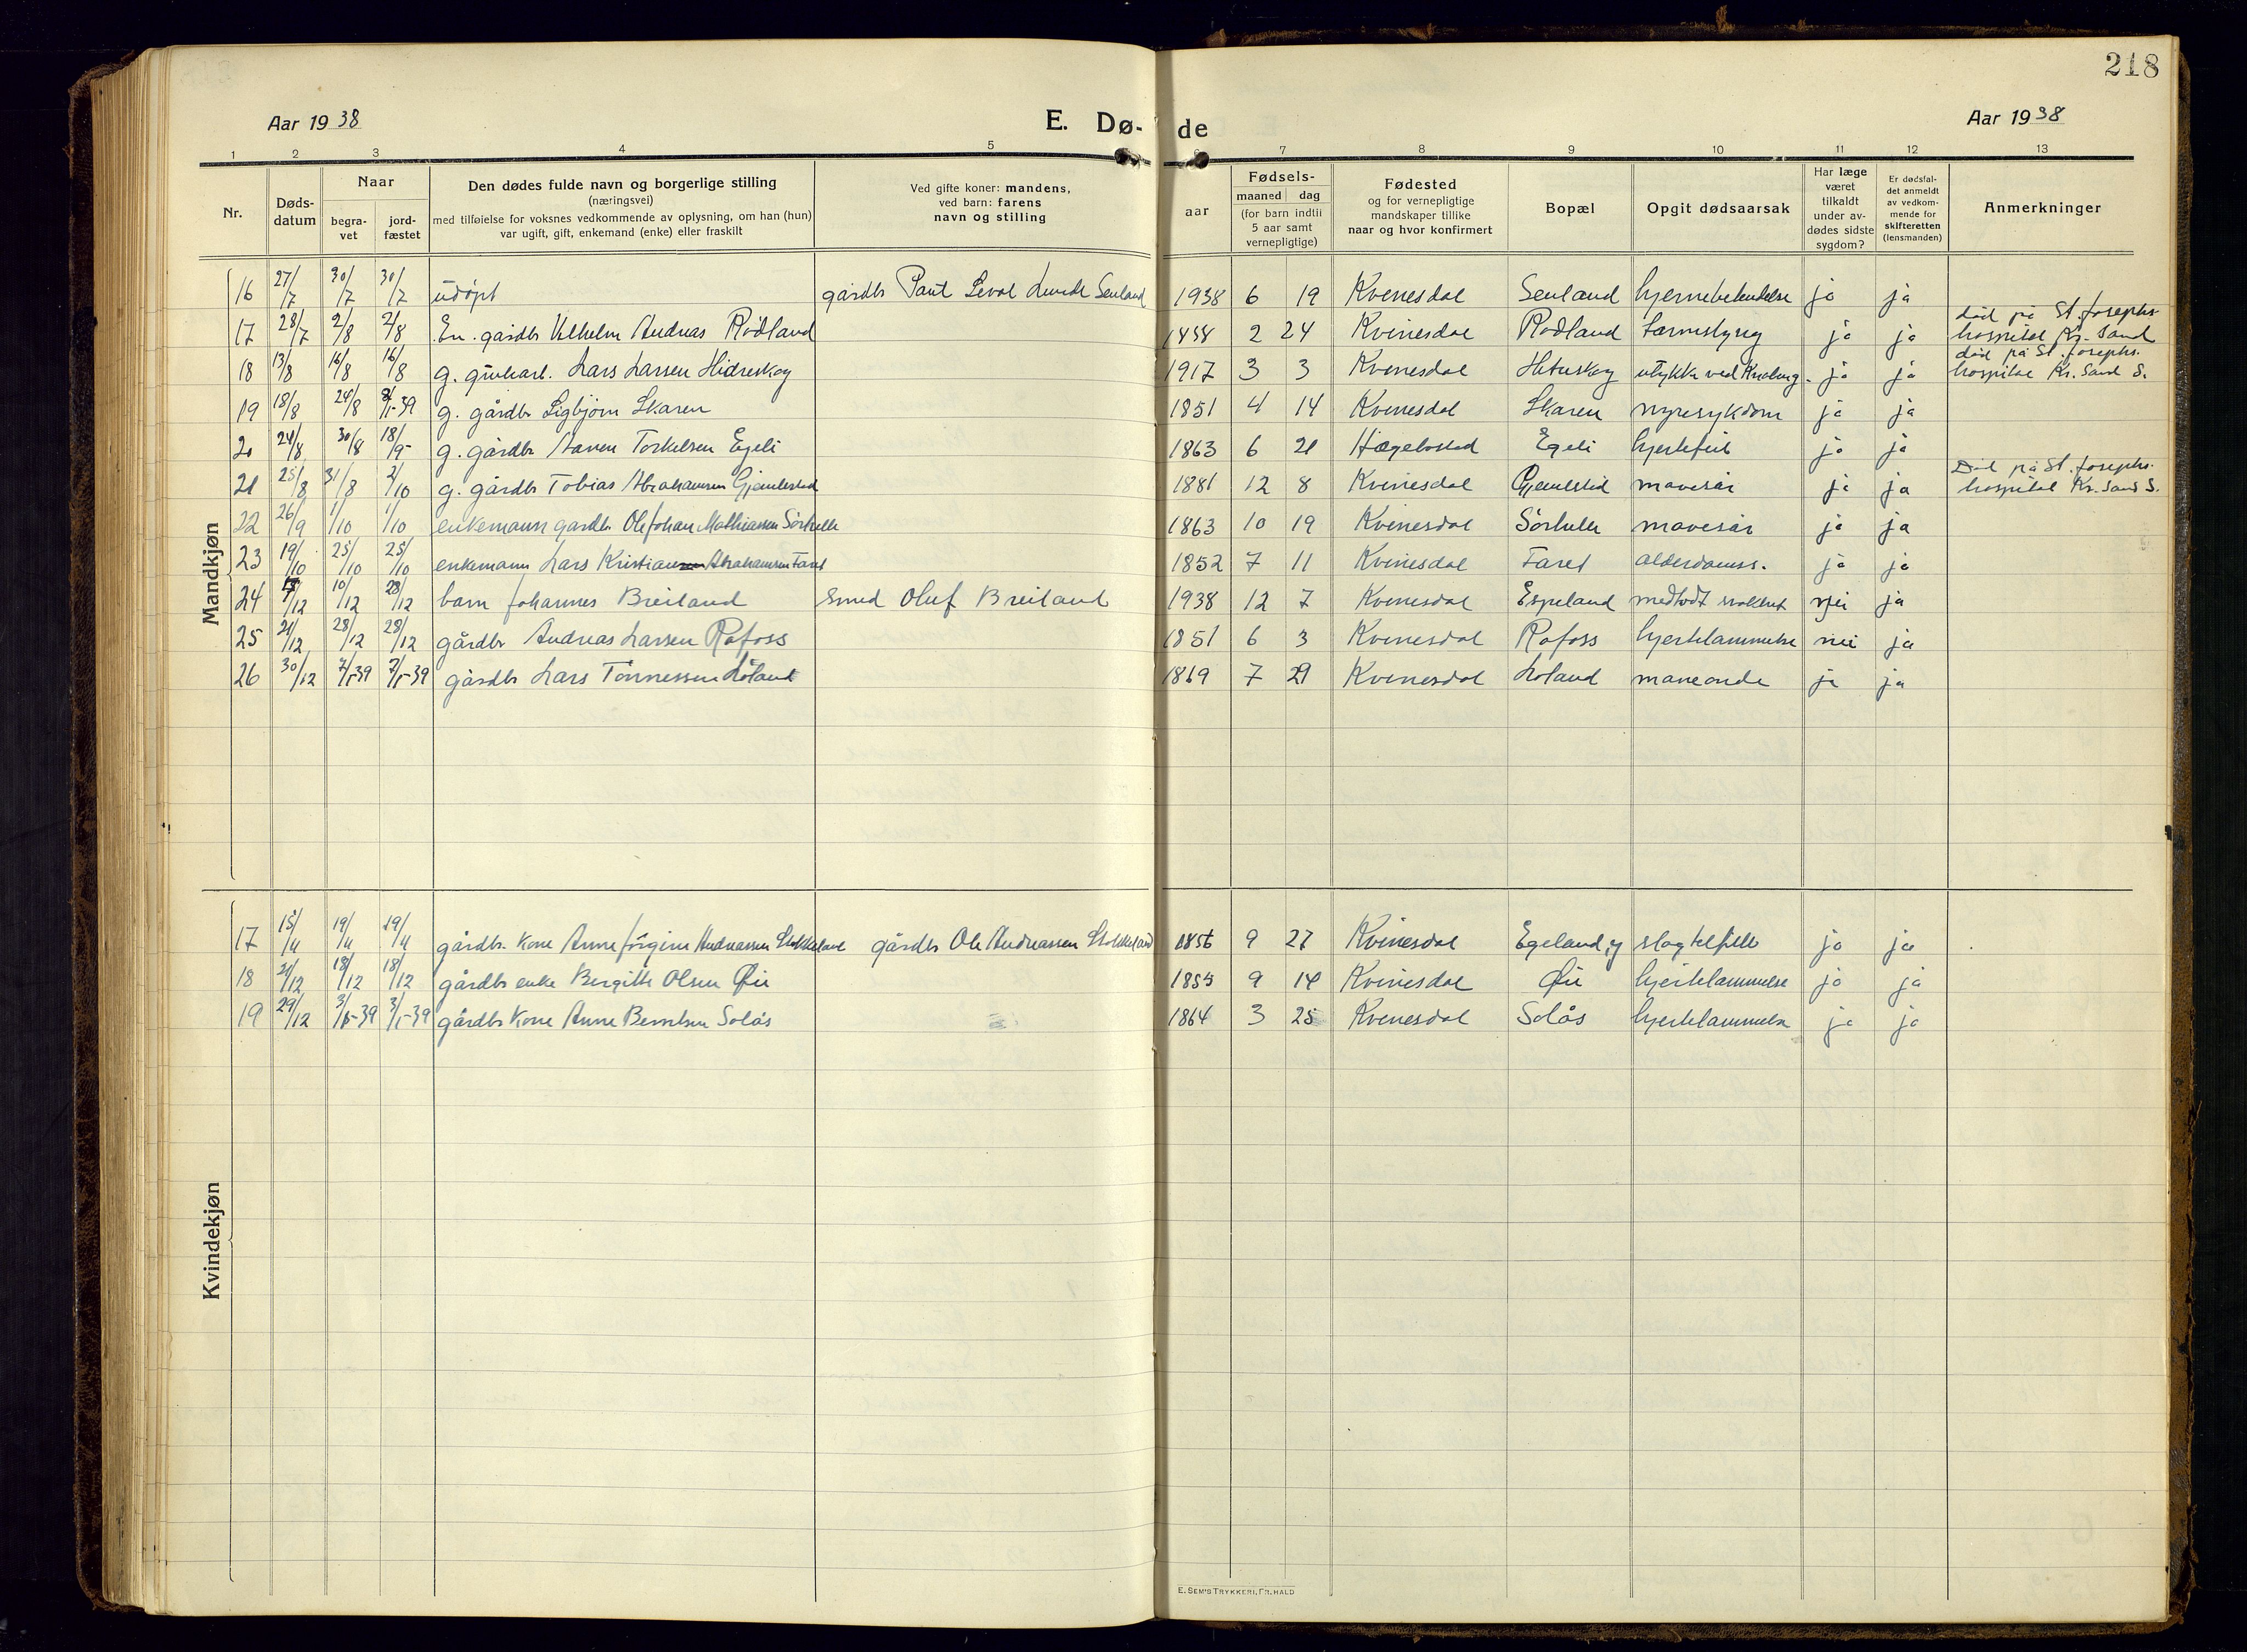 218
Aar 1938
E. Dø-
de
Aar 1938
1 2 3 4 5 6 7 8 9 10 11 12 13
Nr.
Døds-
datum
Naar
begra-
vet
jord-
fæstet
Den dødes fulde navn og borgerlige stilling
(næringsvei)
med tilføielse for voksnes vedkommende av oplysning, om han (hun)
var ugift, gift, enkemand (enke) eller fraskilt
Ved gifte koner: mandens,
ved barn: farens
navn og stilling
aar
Fødsels-
maaned dag
(for barn indtil
5 aar samt
vernepligtige)
Fødested
og for vernepligtige
mandskaper tillike
naar og hvor konfirmert
Bopæl
Opgit dødsaarsak
Har læge
været
tilkaldt
under av-
dødes sidste
sygdom?
Er dødsfal-
det anmeldt
av vedkom-
mende for
skifteretten
(lensmanden)
Anmerkninger
Mandkjøn
16 27/7 30/7 30/7 udöpt gårdbr Paul Seval Lunde Seuland 1938 6 19 Kvinesdal Seuland hjernebetendelse ja ja
17 28/7 2/8 2/8 En. gårdbr Vilhelm Andreas Rödland 1858 2 24 Kvinesdal Rödland tarmslyng ja ja död på St. Josephs hospital Kr. Sand
18 13/8 16/8 16/8 g. Lars Larsen Hidreskog 1917 3 3 Kvinesdal ulykke ved ja ja död på St. Josephs. hospital Kr. Sand S.
19 18/8 24/8 8/1-39 g. gårdbr Sigbjörn Skaren 1851 4 14 Kvinesdal Skaren nyresykdom ja ja
20 24/8 30/8 18/9 g. gårdbr Aanen Torkelsen Egeli 1863 6 21 Hægebostad Egeli hjertefeil ja ja
21 25/8 31/8 2/10 g. gårdbr Tobias Abrahamsen Gjemlestad 1881 12 8 Kvinesdal Gjemlestad mavesår ja ja Död på St. Josephs. hospital Kr. Sand S.
22 26/9 1/10 1/10 enkemann gardbr Ole Johan Mathiassen Sörhelle 1863 10 19 Kvinesdal Sörhelle mavesår ja ja
23 19/10 25/10 25/10 enkemann Lars Kristian Abrahamsen Faret 1852 7 11 Kvinesdal Faret alderdomss. ja ja
24 7/12 10/12 28/12 barn Johannes Breiland Smed Oluf Breiland 1938 12 7 Kvinesdal Espeland medfödt nei ja
25 21/12 28/12 28/12 gårdbr Andreas Larsen Rafoss 1851 6 3 Kvinesdal Rafoss hjertelammelse nei ja
26 30/12 7/1-39 7/1-39 gårdbr Lars Tönnessen Löland 1869 7 29 Kvinesdal Löland maveonde ja ja
Kvindekjøn
17 15/11 19/11 19/11 gårdbr. kone Anne Jörgine Andreassen Stokkeland gårdbr Ole Andreassen Stokkeland 1856 9 27 Kvinesdal Egeland, slagtilfelle ja ja
18 21/12 18/12 18/12 gårdbr enke Bergitte Olsen Öie 1855 9 14 Kvinesdal Öie hjertelammelse ja ja
19 29/12 3/1-39 3/1-39 gårdbr kone Anne Berntsen Solås 1864 3 25 Kvinesdal Solås hjertelammelse ja ja
E. SEM'S TRYKKERI, FR.HALD